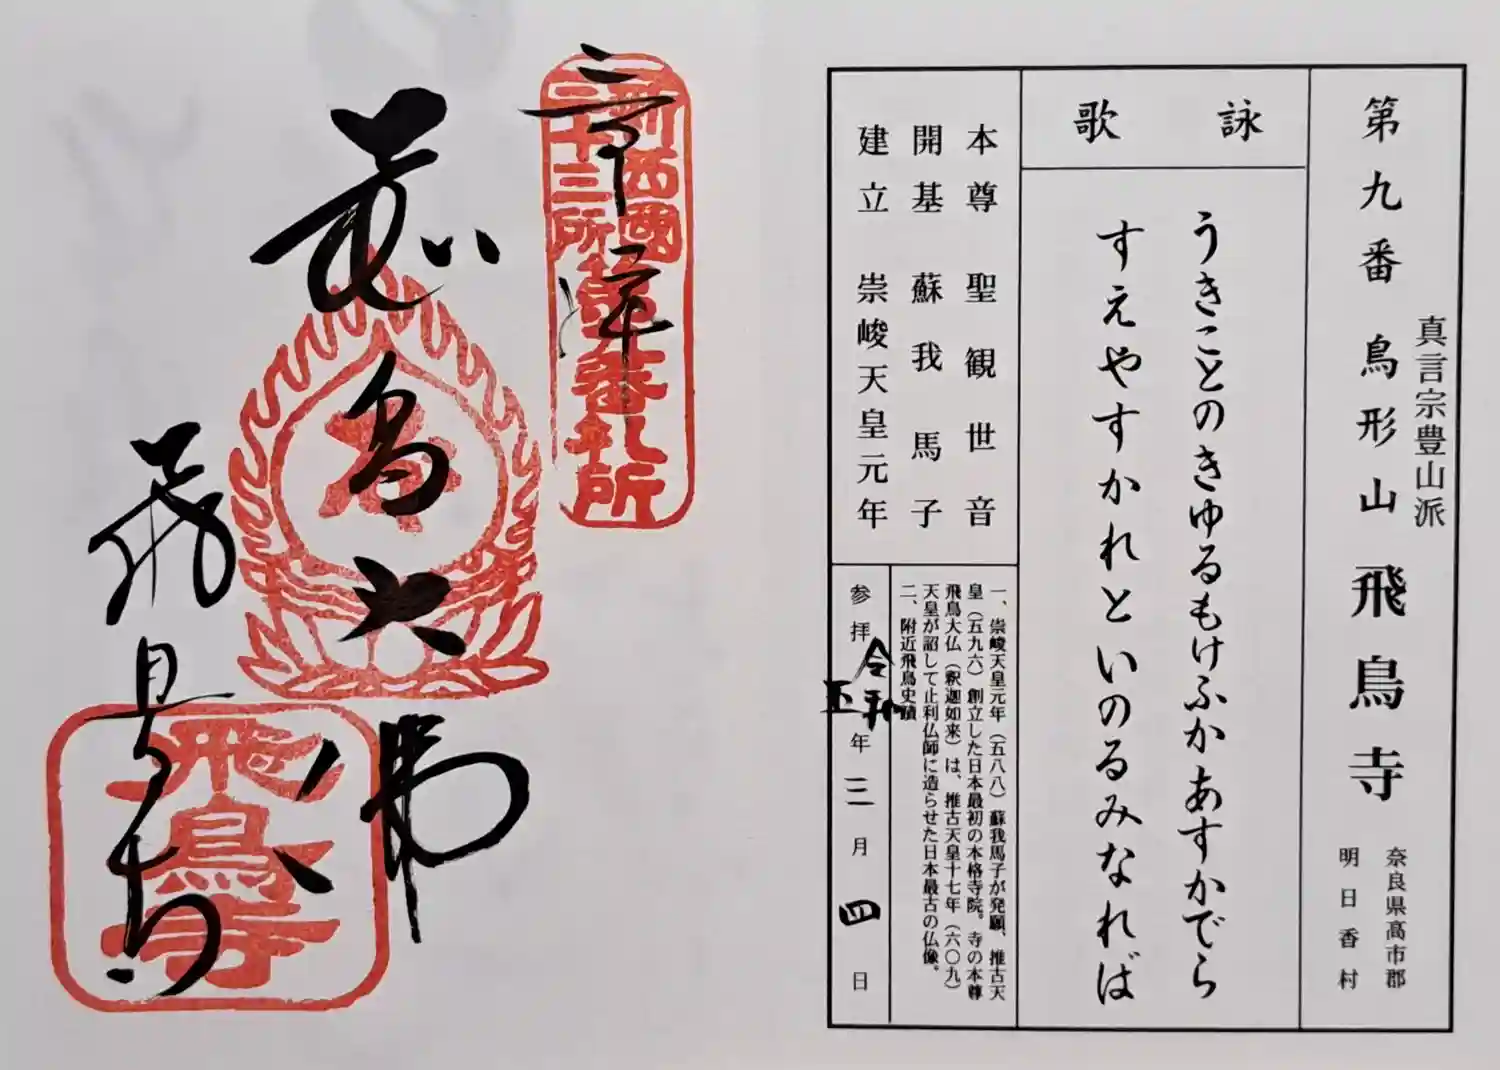 第九番 鳥形山 飛鳥寺
真言宗豊山派
奈良県高市郡
明日香村
詠歌
うきことのきゆるもけふかあすかでら
すえやすかれといのるみなれば
本尊 聖観世音
開基 蘇我馬子
建立 崇峻天皇元年
一、崇峻天皇元年（五八八）蘇我馬子が発願、推古天
皇（五九六）創立した日本最初の本格寺院。寺の本尊
飛鳥大仏（釈迦如来）は、推古天皇十七年（六〇九）
天皇が詔して止利仏師に造らせた日本最古の仏像。
二、附近飛鳥史蹟
参拝 令和五年三月四日
新西國
三十三所第九番札所
奉拝
飛鳥大佛
飛鳥寺
飛鳥寺